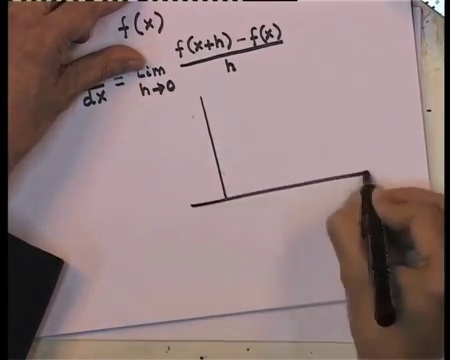 f(x)
dx = Lim h→0 f(x+h) - f(x) / h